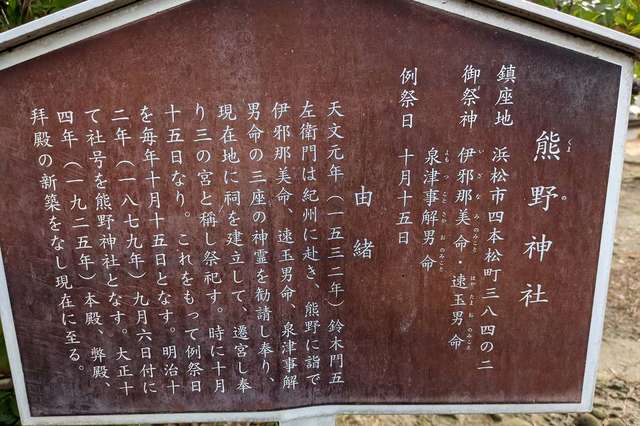 熊野神社
くまの
鎮座地 浜松市四本松町三八四の二
御祭神 伊邪那美命・速玉男命
いざなみのみこと はやたまおのみこと
泉津事解男命
よもつことさかおのみこと
例祭日 十月十五日
由緒
天文元年(一五三二年)鈴木門五
左衛門は紀州に赴き、熊野に詣で
伊邪那美命、速玉男命、泉津事解
男命の三座の神霊を勧請し奉り、
現在地に祠を建立して、遷宮し奉
り三の宮と称し祭祀す。時に十月
十五日なり。これをもって例祭日
を毎年十月十五日となす。明治十
二年(一八七九年)九月六日付に
て社号を熊野神社となす。大正十
四年(一九二五年)本殿、弊殿、
拝殿の新築をなし現在に至る。